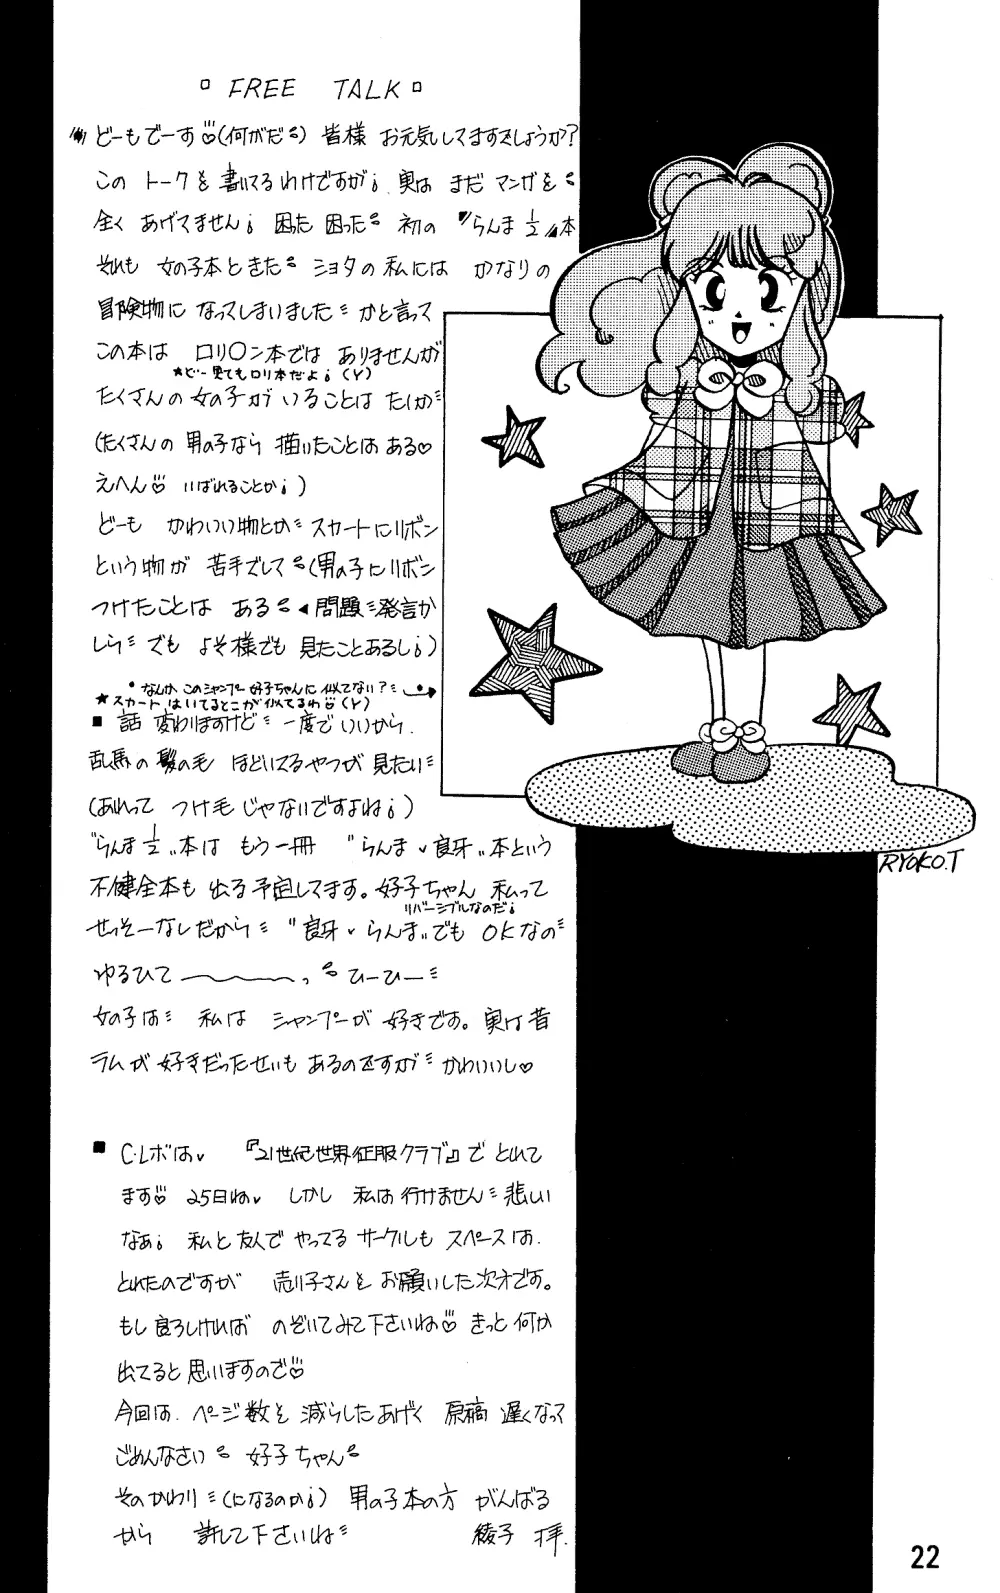 ▫ FREE TALK ▫
どーもでーす♡(何がだ) 皆様 お元気してますでしょうか?
この トークを 書いてるわけですが、実は まだ マンガを
全く あげてません。困った 困った 初の 〝らんま½〟本
それも 女の子本ときた ショタの私には かなりの
冒険物に なってしまいました かと言って
この本は ロリ○ン本では ありませんが
★どー見てもロリ本だよ! (Y)
たくさんの 女の子が いることは たしか
(たくさんの 男の子なら 描いたことは ある♡
えへん♡ いばれることか!)
どーも かわいい物とか スカートにリボン
という物が 苦手でして (男の子にリボン
つけたことは ある ◀問題発言か
しら でも よそ様でも 見たことあるし!)
• なんか このシャンプー 好子ちゃんに似てない?
★スカート はいてるとこが似てるわ♡ (Y)
■ 話 変わりますけど 一度でいいから
乱馬の 髪の毛 ほどいてるやつが 見たい
(あれって つけ毛じゃないですよね!)
〝らんま½〟本は もう一冊 〝らんま♥良牙〟本という
不健全本も 出る予定してます。好子ちゃん 私って
リバーシブルなのだ!
せっそーなしだから 〝良牙♥らんま〟でも OKなの
ゆるひて〜〜〜っ ひーひー
女の子は 私は シャンプーが 好きです。実は 昔
ラムが 好きだったせいも あるのですが かわいいし♡
■ C・レボは、『21世紀世界征服クラブ』で とれて
ます♡ 25日ね♥ しかし 私は 行けません 悲しい
なぁ! 私と友人で やってる サークルも スペースは
とれたのですが 売り子さんを お願いした次才です。
もし 良ろしければ のぞいてみて下さいね♡ きっと 何か
出てると 思いますので♡
今回は、ページ数を 減らしたあげく 原稿 遅くなって
ごめんなさい 好子ちゃん
そのかわり (になるのか!) 男の子本の方 がんばる
から 許して下さいね 綾子 拝.
RYOKO.T
22